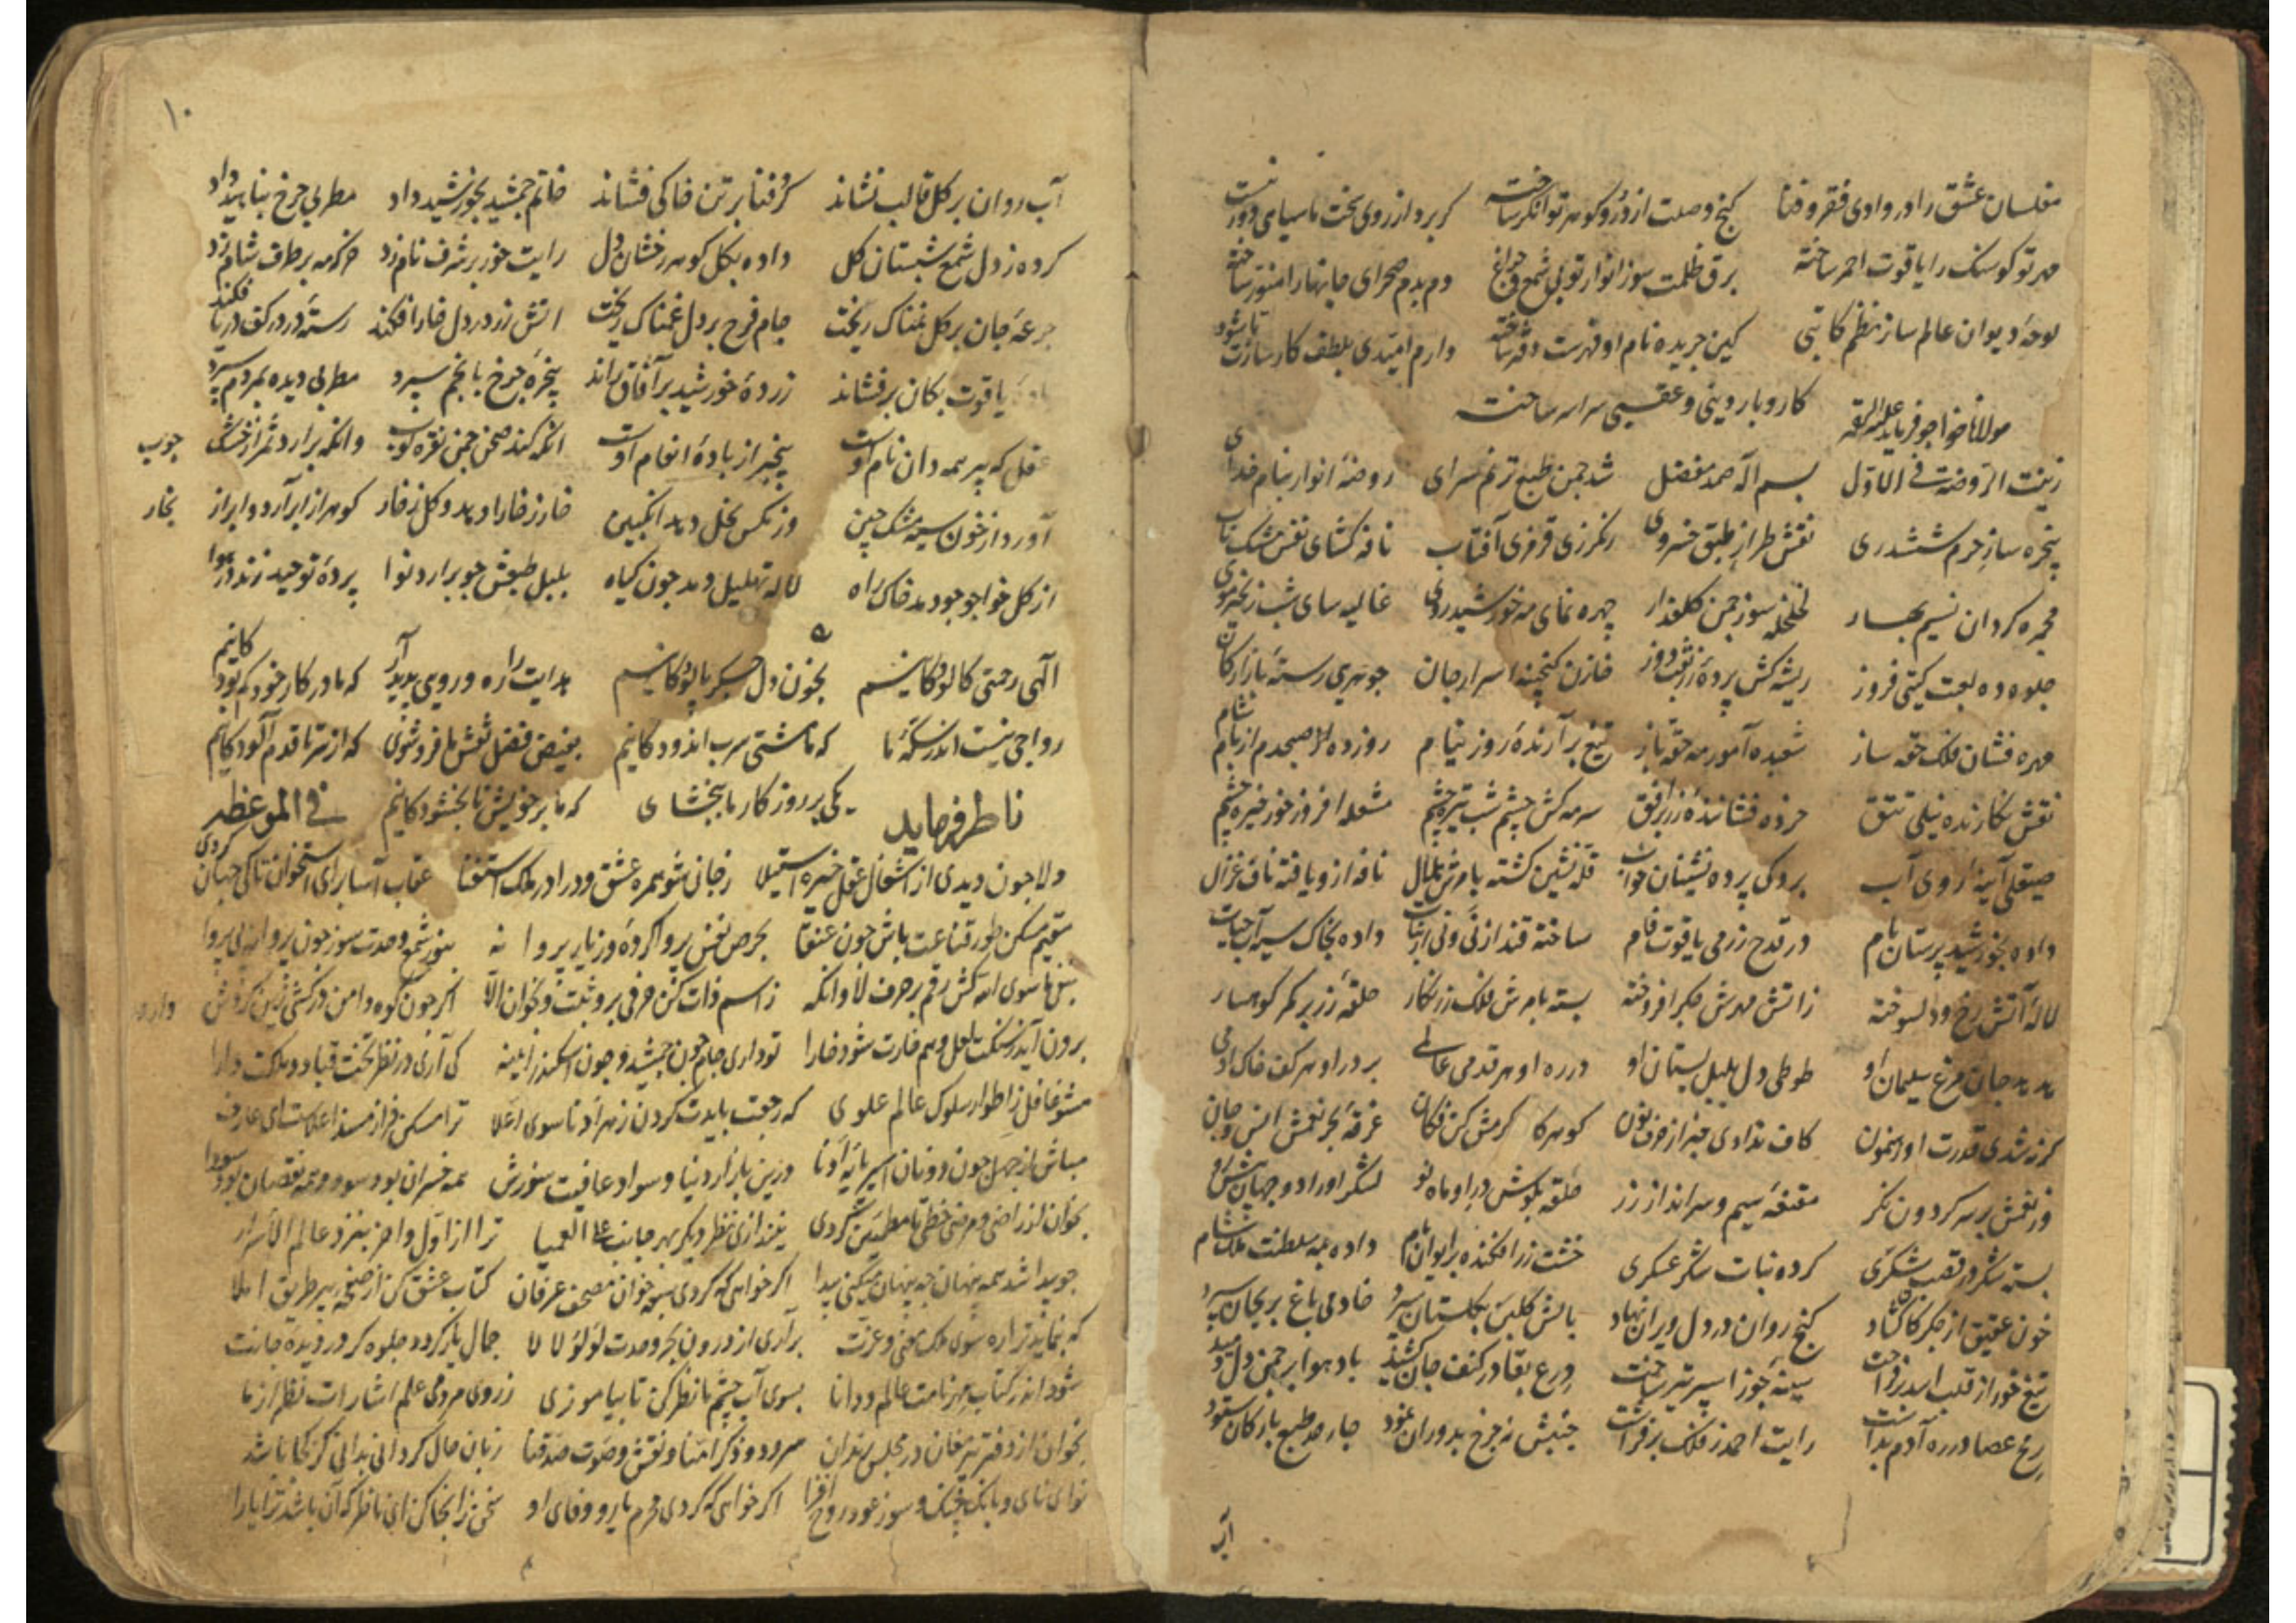 مفلسان عشق را در وادی فقر و فنا گنج وصلت از در و گوهر توانگر ساخت کر برد از روی بخت ما سیاهی دور نیست
مهر تو کو سنک را یاقوت احمر ساخته برق ظلمت سوز انوار تو بی شمع و چراغ دم بدم صحرای جانها را منور ساخته
لوحهٔ دیوان عالم ساز نظم کاتبی کین جریده نام او فهرست دفتر ساخته دارم امیدی بلطف کارسازت تا شود
کار و بار دینی و عقبی سراسر ساخته
مولانا خواجو فرماید علیه الرحمه
زینت الروضة فی الاول بسم اله صمد مفضل شد چمن طبع ترنم سرای روضهٔ انوار بنام خدای
پنجره ساز حرم ششدری نقش طراز طبق خسروی رنکرزی قرمزی آفتاب نافه کشای نفس مشک ناب
مجمره کردان نسیم بهار لخلخه سوز چمن کلعذار چهره نمای مه خورشید روی غالیه سای شب زنجیر موی
جلوه ده لعبت کیتی فروز ریشه کش پردهٔ زربفت روز خازن کنجینه اسرار جان جوهری رستهٔ بازار کان
مهره فشان فلک حقه ساز شعبده آموز مه حقه باز تیغ برآرندهٔ روز نیام روز ده صبحدم از بام شام
نقش نکارنده نیلی تتق خرده فشانندهٔ زر بر افق سرمه کش چشم شب تیره چشم مشعله افروز خور خیره چشم
صیقلی آینهٔ روی آب بردکی پرده نشینان خواب قله نشین کشته بامرش بلال نافه ازو یافته ناف غزال
داده بخورشید پرستان بام در قدح زر می یاقوت فام ساخته قند از نی و نی از نبات داده بخاک سیه آب حیات
لالهٔ آتش رخ و دلسوخته ز آتش مهرش جکر افروخته بسته بامرش فلک زرنکار حلقهٔ زر بر کمر کوهسار
هدهد جان مرغ سلیمان او طوطی دل بلبل بستان او در ره او هر قدمی عالمی بر در او هر کف خاک آدمی
کر نه شدی قدرت او رهنمون کاف ندادی خبر از حرف نون کوهر کا کرمش کن فکان غرقهٔ بحر نعمش انس و جان
مقنعهٔ سیم و سرانداز زر حلقه بکوش در او ماه نو لشکر او را دو جهان پیش رو
بسته شکر در قصب شکری کرده نبات شکر عسکری خشت زر افکنده بر ایوان بام داده به سلطنت ملک شام
خون عقیق از جکر کان کشاد کنج روان در دل ویران نهاد بالش کلبن بکلستان سپرد خادمی باغ بریحان سپرد
تیغ خور از قلب اسد سینهٔ جوزا سپر تیر ساخت درع بقا در کنف جان کشید باد هوا بر چمن دل دمید
رمح عصا در ره آدم بداشت رایت احمد ز فلک برفراشت جنبش نه چرخ بدوران نمود چار حد طبع بارکان ستود
آب
۱۰
آب روان بر کل قالب نشاند کرد فنا بر تن خاکی فشاند خاتم جمشید بخورشید داد مطربی چرخ بناهید داد
کرده ز دل شمع شبستان کل داده بکل کوهر رخشان دل رایت خور بر شرف نام زد خرکه مه بر طرف شام زد
جرعهٔ جان بر کل نمناک ریخت جام فرح بر دل غمناک ریخت آتش زر در دل خارا فکند رستهٔ در در کف دریا فکند
یاقوت بکان برفشاند زردهٔ خورشید بر آفاق راند پنجرهٔ چرخ بانجم سپرد مطربی دیده بمردم سپرد
عقل که پیر همه دان نام اوست بیخبر از بادهٔ انعام اوست آنکه کند صحن چمن نقره کوب وانکه برآرد ثمر از خشک چوب
آورد از خون سیه مشک چین وز مکس نحل دهد انکبین خار ز خارا دهد و کل ز خار کوهر از ابر آرد و ابر از بخار
از کل خواجو چو دمد خاک راه لاله تهلیل دمد چون کیاه بلبل طبعش چو برآرد نوا پردهٔ توحید زند در هوا
الهی رحمتی کالوده کانیم بخون دل جکر پالوده کانیم هدایت را ره و رویی پدید آر که ما در کار خود کم بوده کانیم
رواجی نیست اندر سکهٔ ما که ما مشتی سرب اندوده کانیم بفیض فضل نقش ما فرو شوی که از سر تا قدم آلوده کانیم
یکی بر روز کار ما ببخشای که ما بر خویش نابخشوده کانیم
ناظر فرماید فی الموعظه
دلا چون دیدی از اشغال عقل خیره استیلا ز جان شو همره عشق و درا در ملک استغنا عقاب آسا برای استخوان تا کی جهان کردی
مقیم مسکن طور قناعت باش چون عنقا بحرص نفس پروا کردهٔ وز یار پروا نه بسوز شمع وحدت سوز چون پروانه بی پروا
بنفی ماسوی الله کش رقم بر حرف لا وانکه ز اسم ذات کن حرفی برو ثبت و بخوان الا اکر چون کوه دامن در کشی زین کردش دارد
برون آید ز سنکت لعل وهم خارت شود خارا تو داری جام چون جمشید و چون اسکندر آیینه کی آری در نظر تخت قباد و ملکت دارا
مشو غافل ز اطوار سلوک عالم علوی که رجعت بایدت کردن ز هر ادنا سوی اعلا ترا مسکن فراز مسند اعلاست ای عارف
مباش از جهل چون دونان اسیر پایهٔ ادنا درین بازار دنیا و سواد عاقبت سوزش همه خسران بود سود و همه نقصان بود سودا
نیندازی نظر دیکر بهر جانب علی العمیا ترا از اول و آخر بنزد عالم الاسرار
چو پیدا شد همه پنهان چه پنهان میکنی پیدا اکر خواهی که کردی سبعه خوان مصحف عرفان کتاب عشق کن از صفحهٔ پیر طریق املا
که بنماید ترا ره سوی ملک و عزت برآری از درون بحر وحدت لؤلؤ لالا جمال یار کردد جلوه کر در دیدهٔ جانت
بسوی آب چشم ما نظر کن تا بیاموزی ز روی مردمی علم اشارات نظر از ما
بخوان از دفتر پیر مغان در مجلس رندان سرود و ذکر آمنا و نقش و صوت صدقنا زبان حال کردانی بدانی کز کجا باشد
نوای نای و بانک چنک و سوز عود روح افزا اکر خواهی که کردی محرم یار و وفای او سخن زانجا کن ای ناظر که آن باشد ترا یارا